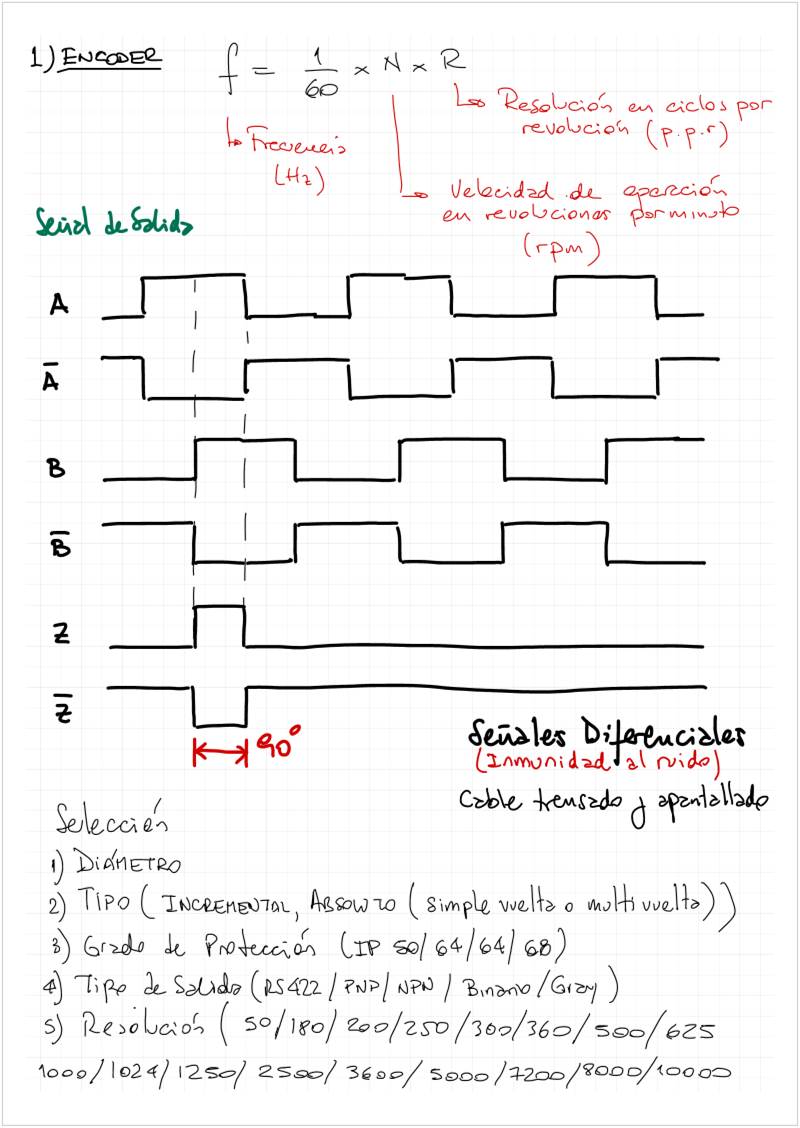 1) ENCODER
f = 1/60 × N × R
↳ Resolución en ciclos por
revolución (p.p.r)
↳ Frecuencia
(Hz)
↳ Velocidad de operación
en revoluciones por minuto
(rpm)
Señal de Salida
A
A̅
B
B̅
Z
Z̅
90°
Señales Diferenciales
(Inmunidad al ruido)
Cable trensado y apantallado
Selección
1) DIÁMETRO
2) TIPO (INCREMENTAL, ABSOLUTO (simple vuelta o multi vuelta))
3) Grado de Protección (IP 50/64/64/68)
4) Tipo de Salida (RS422/PNP/NPN/Binario/Gray)
5) Resolución (50/180/200/250/300/360/500/625
1000/1024/1250/2500/3600/5000/7200/8000/10000